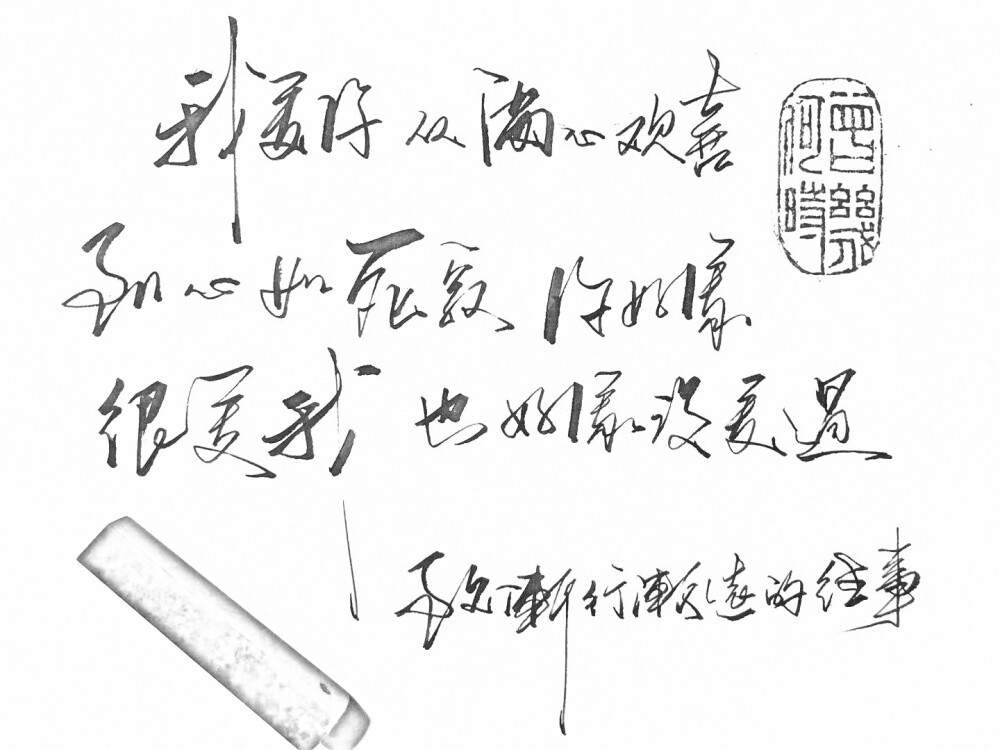 我爱你 从 满心欢喜
到心如死寂 你好像
很爱我 也好像没爱过
致渐行渐远的往事